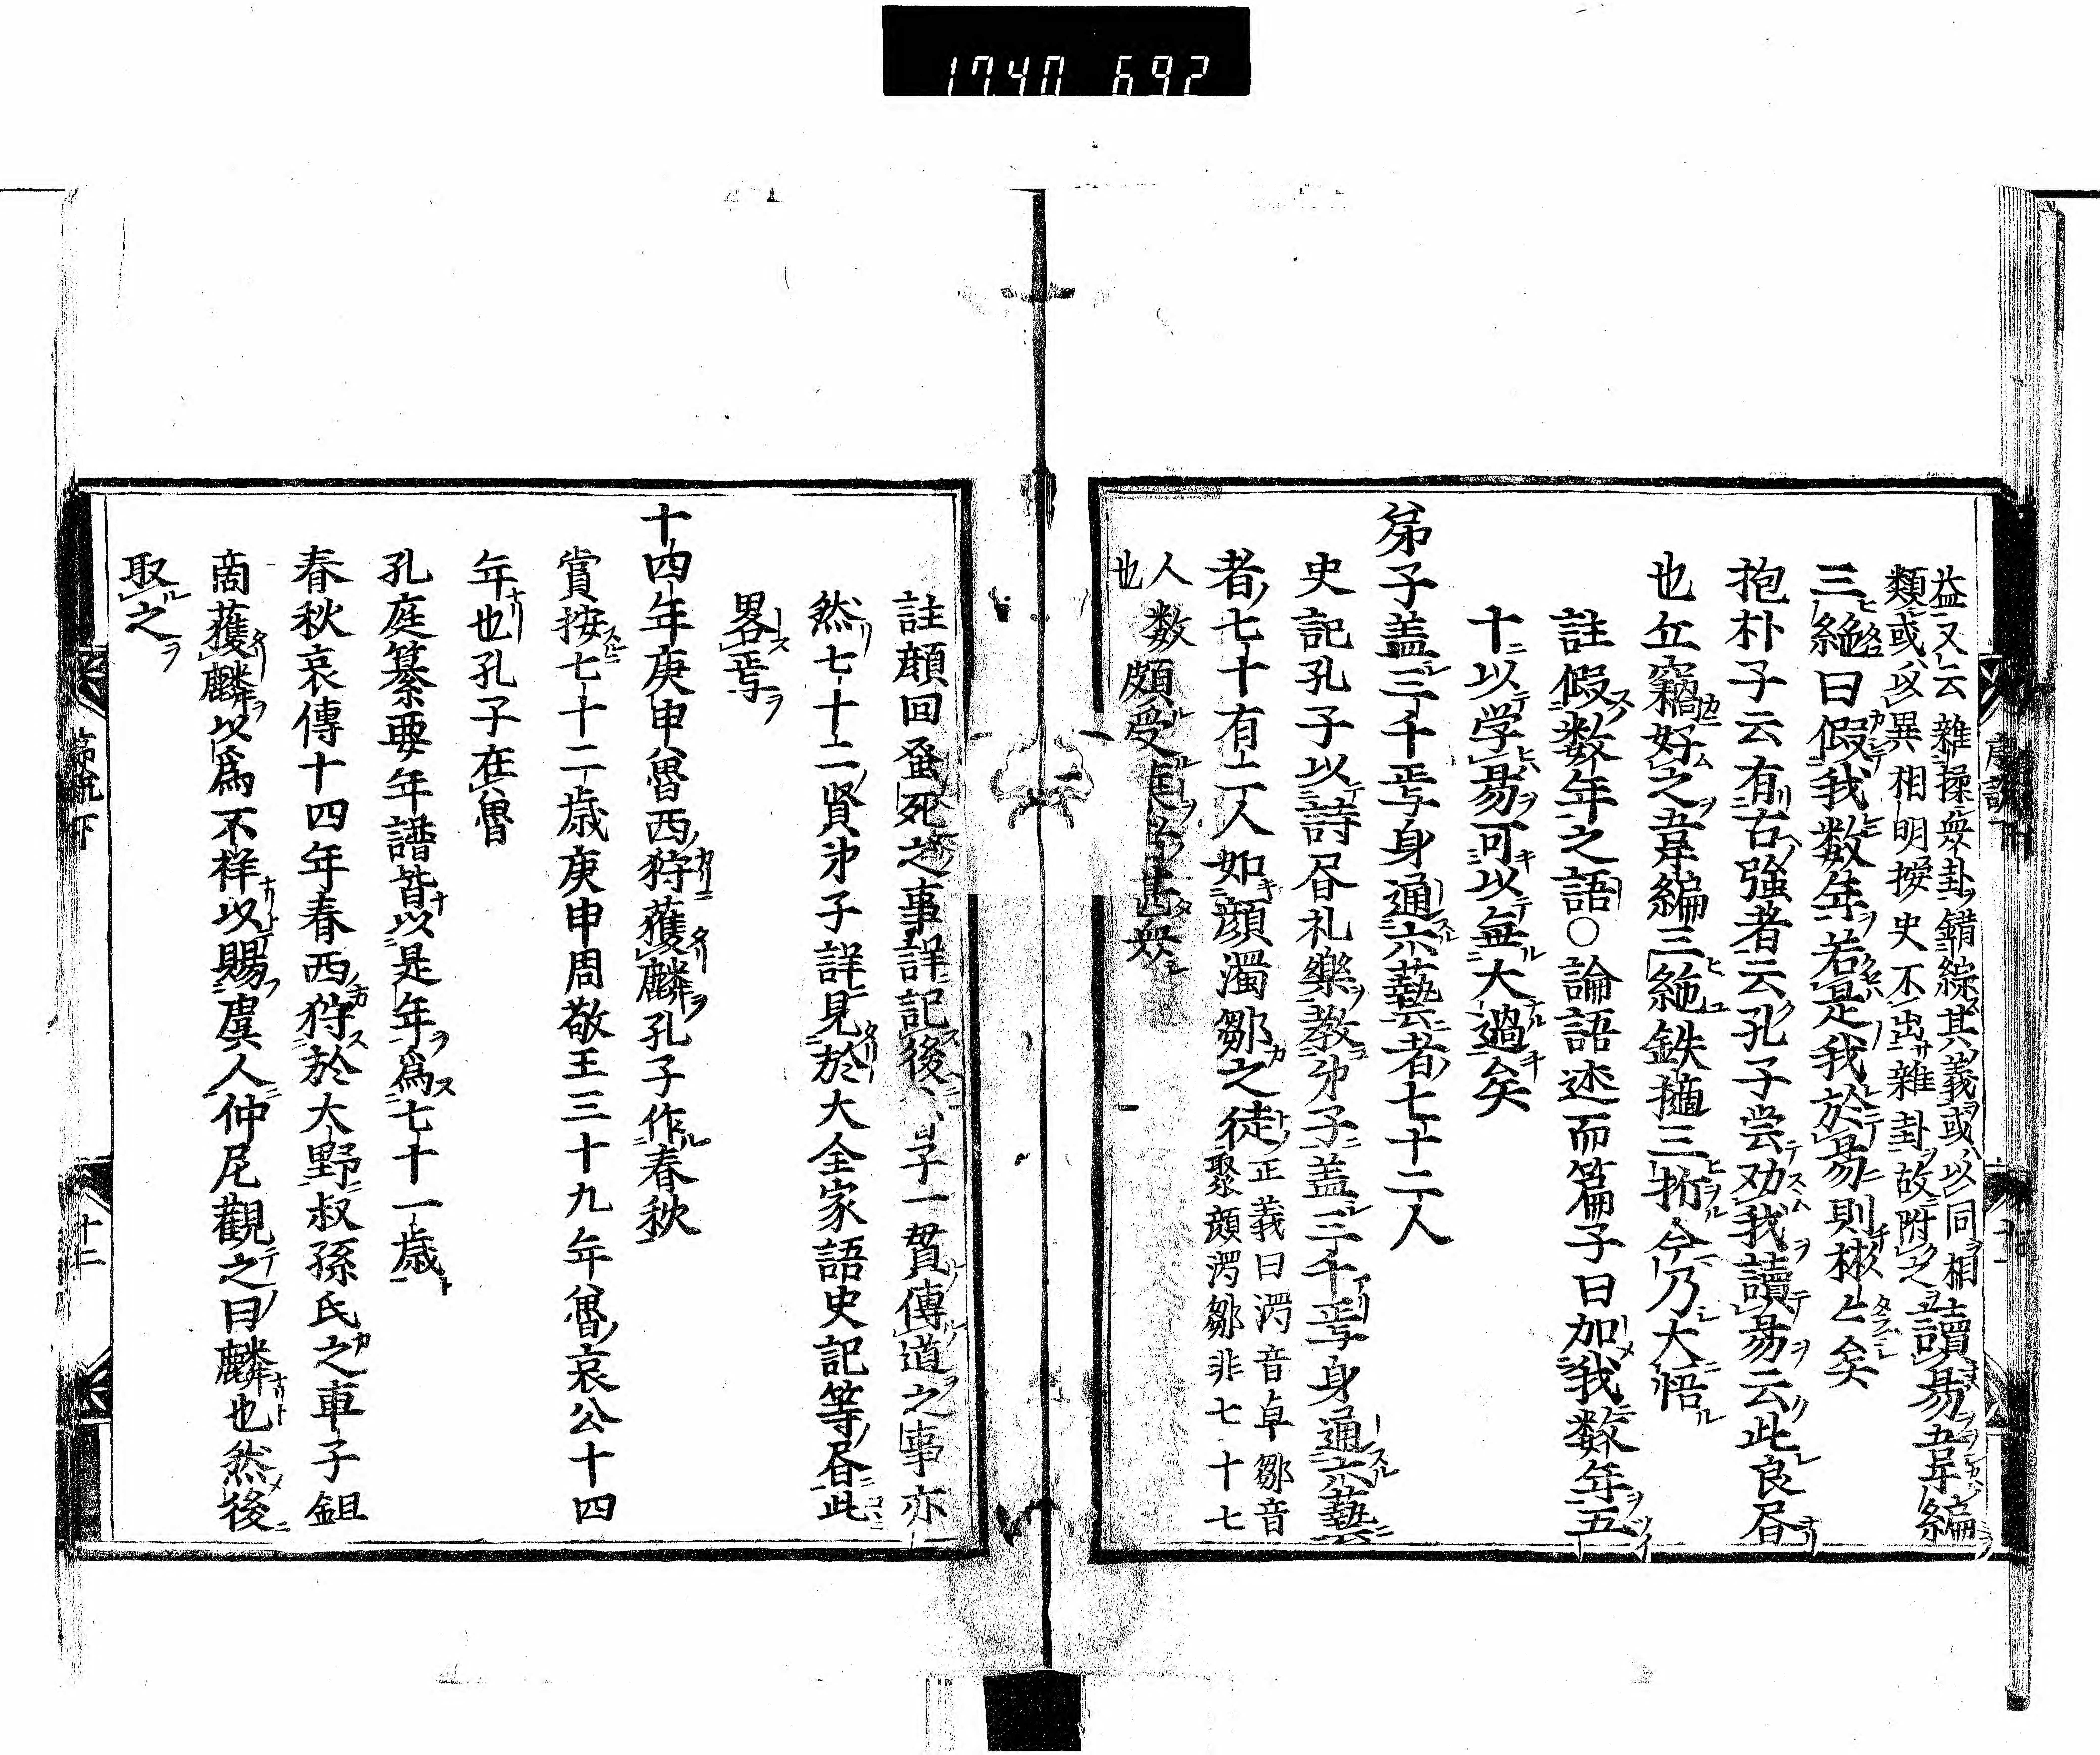 1740 692
益又云雜揉衆卦錯綜其義或以同相
類或以異相明按史不出雜卦故附之
讀易韋編
三絶曰假我数年若是我於易則彬〻矣
抱朴子云有古強者云孔子尝劝我讀易云此良昏
也丘竊好之韋編三絶鉄擿三折今乃大悟
註假数年之語○論語述而篇子曰加我数年五
十以学易可以無大過矣
弟子盖三千焉身通六藝者七十二人
史記孔子以詩昏礼樂教弟子盖三千焉身通六藝
者七十有二人如顔濁鄒之徒
正義曰濁音卓鄒音
聚顔濁鄒非七十七
人
也
数頗受業者甚衆
註顔回蚤死之事詳記後 子一貫傳道之事亦
然七十二賢弟子詳見於大全家語史記等昏此
畧焉
十四年庚申魯西狩獲麟孔子作春秋
賞按七十二歳庚申周敬王三十九年魯哀公十四
年也孔子在魯
孔庭纂要年譜皆以是年為七十一歳
春秋哀傳十四年春西狩於大野叔孫氏之車子鉏
商獲麟以為不祥以賜虞人仲尼觀之曰麟也然後
取之
序説下
十二